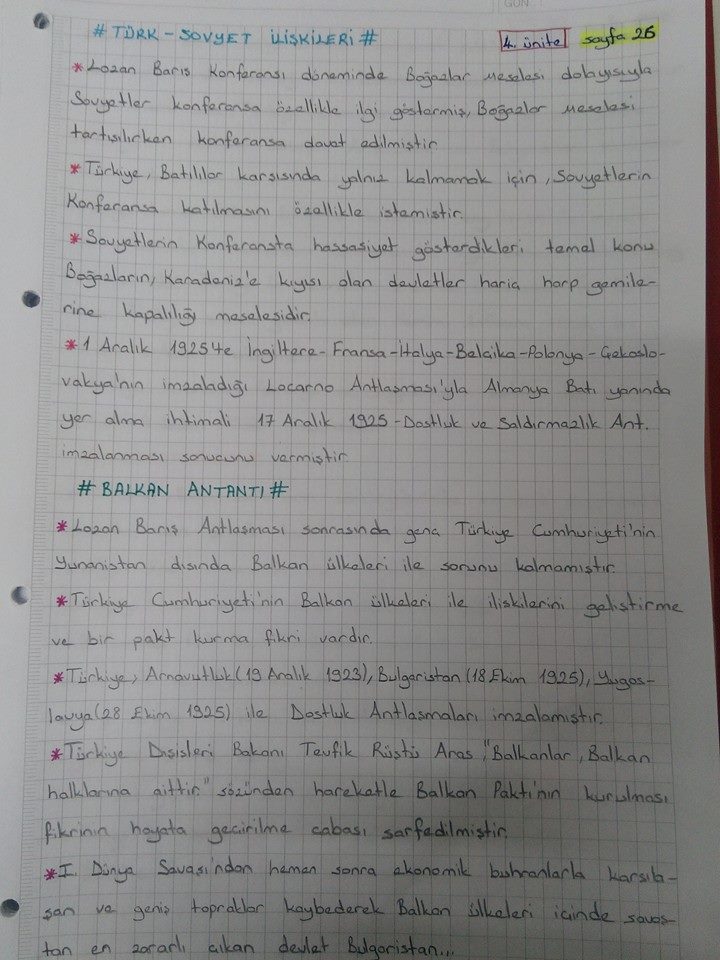 # TÜRK - SOVYET İLİŞKİLERİ #
4. ünite sayfa 26
* Lozan Barış Konferansı döneminde Boğazlar meselesi dolayısıyla
Sovyetler konferansa özellikle ilgi göstermiş, Boğazlar meselesi
tartışılırken konferansa davet edilmiştir
* Türkiye, Batılılar karşısında yalnız kalmamak için, Sovyetlerin
Konferansa katılmasını özellikle istemiştir.
* Sovyetlerin Konferansta hassasiyet gösterdikleri temel konu
Boğazların, Karadeniz'e kıyısı olan devletler hariç harp gemile-
rine kapalılığı meselesidir.
* 1 Aralık 1925'te İngiltere-Fransa-İtalya-Belçika-Polonya-Çekoslo-
vakya'nın imzaladığı Locarno Antlaşması'yla Almanya Batı yanında
yer alma ihtimali 17 Aralık 1925 - Dostluk ve Saldırmazlık Ant.
imzalanması sonucunu vermiştir.
# BALKAN ANTANTI #
* Lozan Barış Antlaşması sonrasında genç Türkiye Cumhuriyeti'nin
Yunanistan dışında Balkan ülkeleri ile sorunu kalmamıştır.
* Türkiye Cumhuriyeti'nin Balkan ülkeleri ile ilişkilerini geliştirme
ve bir pakt kurma fikri vardır.
* Türkiye, Arnavutluk (19 Aralık 1923), Bulgaristan (18 Ekim 1925), Yugos-
lavya (28 Ekim 1925) ile Dostluk Antlaşmaları imzalamıştır.
* Türkiye Dışişleri Bakanı Tevfik Rüştü Aras "Balkanlar, Balkan
halklarına aittir." sözünden hareketle Balkan Paktı'nın kurulması
fikrinin hayata geçirilme çabası sarfedilmiştir.
* I. Dünya Savaşı'ndan hemen sonra ekonomik buhranlarla karşıla-
şan ve geniş topraklar kaybederek Balkan ülkeleri içinde savaş-
tan en zararlı çıkan devlet Bulgaristan...